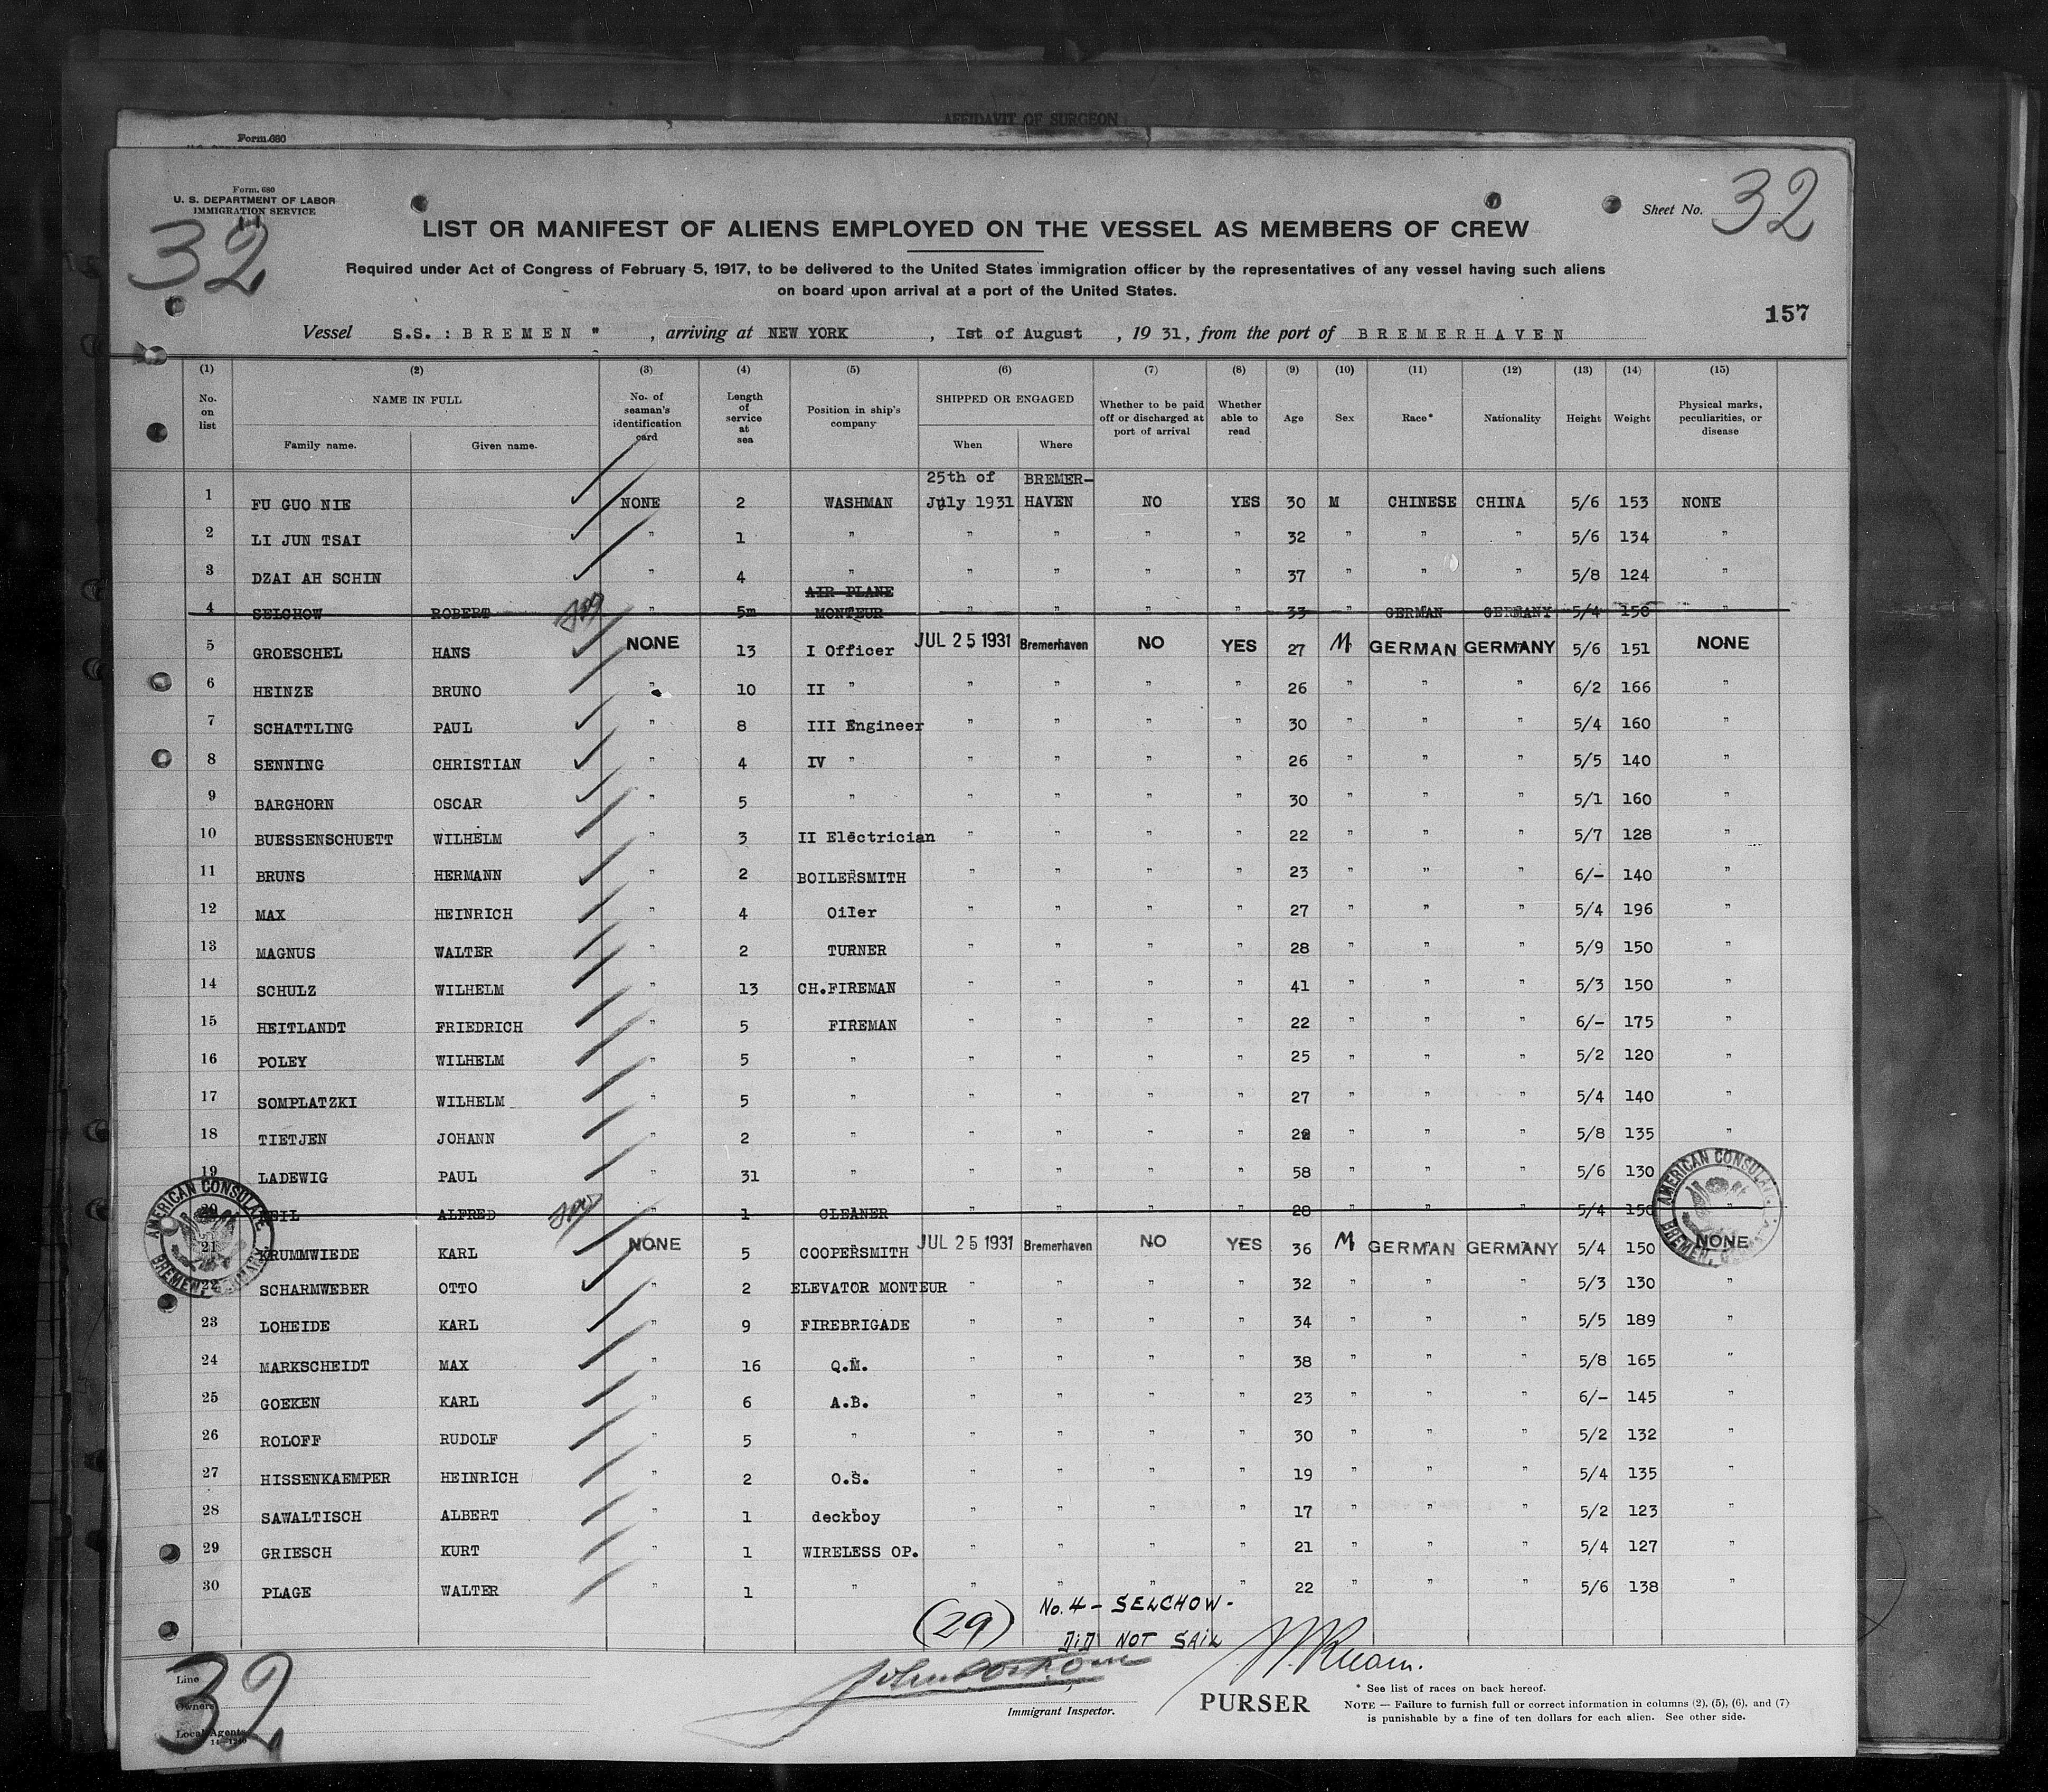 AFFIDAVIT OF SURGEON
Form 680
Form. 680
U. S. DEPARTMENT OF LABOR
IMMIGRATION SERVICE
32
Sheet No. 32
LIST OR MANIFEST OF ALIENS EMPLOYED ON THE VESSEL AS MEMBERS OF CREW
Required under Act of Congress of February 5, 1917, to be delivered to the United States immigration officer by the representatives of any vessel having such aliens
on board upon arrival at a port of the United States.
157
Vessel S.S.: BREMEN " , arriving at NEW YORK , Ist of August , 19 31, from the port of BREMERHAVEN
(1) (2) (3) (4) (5) (6) (7) (8) (9) (10) (11) (12) (13) (14) (15)
No. on list NAME IN FULL Family name. Given name. No. of seaman's identification card Length of service at sea Position in ship's company SHIPPED OR ENGAGED When Where Whether to be paid off or discharged at port of arrival Whether able to read Age Sex Race* Nationality Height Weight Physical marks, peculiarities, or disease
1 FU GUO NIE NONE 2 WASHMAN 25th of July 1931 BREMER-HAVEN NO YES 30 M CHINESE CHINA 5/6 153 NONE
2 LI JUN TSAI " 1 " " " " " 32 " " " 5/6 134 "
3 DZAI AH SCHIN " 4 " " " " " 37 " " " 5/8 124 "
4 SELCHOW ROBERT " 5m AIR PLANE MONTEUR " " " " 33 " GERMAN GERMANY 5/4 150 "
5 GROESCHEL HANS NONE 13 I Officer JUL 25 1931 Bremerhaven NO YES 27 M GERMAN GERMANY 5/6 151 NONE
6 HEINZE BRUNO " 10 II " " " " " 26 " " " 6/2 166 "
7 SCHATTLING PAUL " 8 III Engineer " " " " 30 " " " 5/4 160 "
8 SENNING CHRISTIAN " 4 IV " " " " " 26 " " " 5/5 140 "
9 BARGHORN OSCAR " 5 " " " " " 30 " " " 5/1 160 "
10 BUESSENSCHUETT WILHELM " 3 II Electrician " " " " 22 " " " 5/7 128 "
11 BRUNS HERMANN " 2 BOILERSMITH " " " " 23 " " " 6/- 140 "
12 MAX HEINRICH " 4 Oiler " " " " 27 " " " 5/4 196 "
13 MAGNUS WALTER " 2 TURNER " " " " 28 " " " 5/9 150 "
14 SCHULZ WILHELM " 13 CH.FIREMAN " " " " 41 " " " 5/3 150 "
15 HEITLANDT FRIEDRICH " 5 FIREMAN " " " " 22 " " " 6/- 175 "
16 POLEY WILHELM " 5 " " " " " 25 " " " 5/2 120 "
17 SOMPLATZKI WILHELM " 5 " " " " " 27 " " " 5/4 140 "
18 TIETJEN JOHANN " 2 " " " " " " " " 5/8 135 "
19 LADEWIG PAUL " 31 " " " " " 58 " " " 5/6 130 "
20 ALFRED " 1 CLEANER " " " " 28 " " " 5/4 150 "
21 KRUMMWIEDE KARL NONE 5 COOPERSMITH JUL 25 1931 Bremerhaven NO YES 36 M GERMAN GERMANY 5/4 150 NONE
22 SCHARMWEBER OTTO " 2 ELEVATOR MONTEUR " " " " 32 " " " 5/3 130 "
23 LOHEIDE KARL " 9 FIREBRIGADE " " " " 34 " " " 5/5 189 "
24 MARKSCHEIDT MAX " 16 Q.M. " " " " 38 " " " 5/8 165 "
25 GOEKEN KARL " 6 A.B. " " " " 23 " " " 6/- 145 "
26 ROLOFF RUDOLF " 5 " " " " " 30 " " " 5/2 132 "
27 HISSENKAEMPER HEINRICH " 2 O.S. " " " " 19 " " " 5/4 135 "
28 SAWALTISCH ALBERT " 1 deckboy " " " " 17 " " " 5/2 123 "
29 GRIESCH KURT " 1 WIRELESS OP. " " " " 21 " " " 5/4 127 "
30 PLAGE WALTER " 1 " " " " " 22 " " " 5/6 138 "
AMERICAN CONSULATE
BREMEN, GERMANY
AMERICAN CONSULATE
BREMEN, GERMANY
(29) No. 4 - SELCHOW -
DID NOT SAIL
32
Line
Owners
Local Agents
Immigrant Inspector.
PURSER
* See list of races on back hereof.
NOTE — Failure to furnish full or correct information in columns (2), (5), (6), and (7)
is punishable by a fine of ten dollars for each alien. See other side.